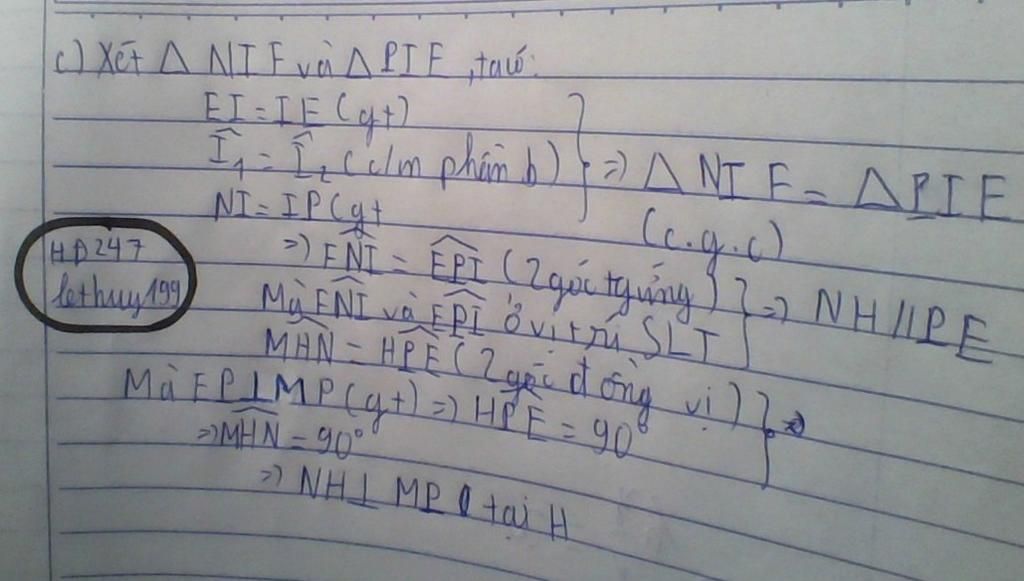 c) Xét Δ NIF và Δ PIE, ta có:
EI = IE (gt)
Î₁ = Î₂ (c/m phần b)
=> Δ NIF = Δ PIE
NI = IP (gt
(c.g.c)
HD247
lethuy199
=> FNI = EPI (2 góc tg ứng)
Mà FNI và EPI ở vị trí SLT
=> NH // PE
MHN = HPE (2 góc đồng vị)
Mà EP ⊥ MP (gt) => HPE = 90° =>
=> MHN = 90°
=> NH ⊥ MP tại H